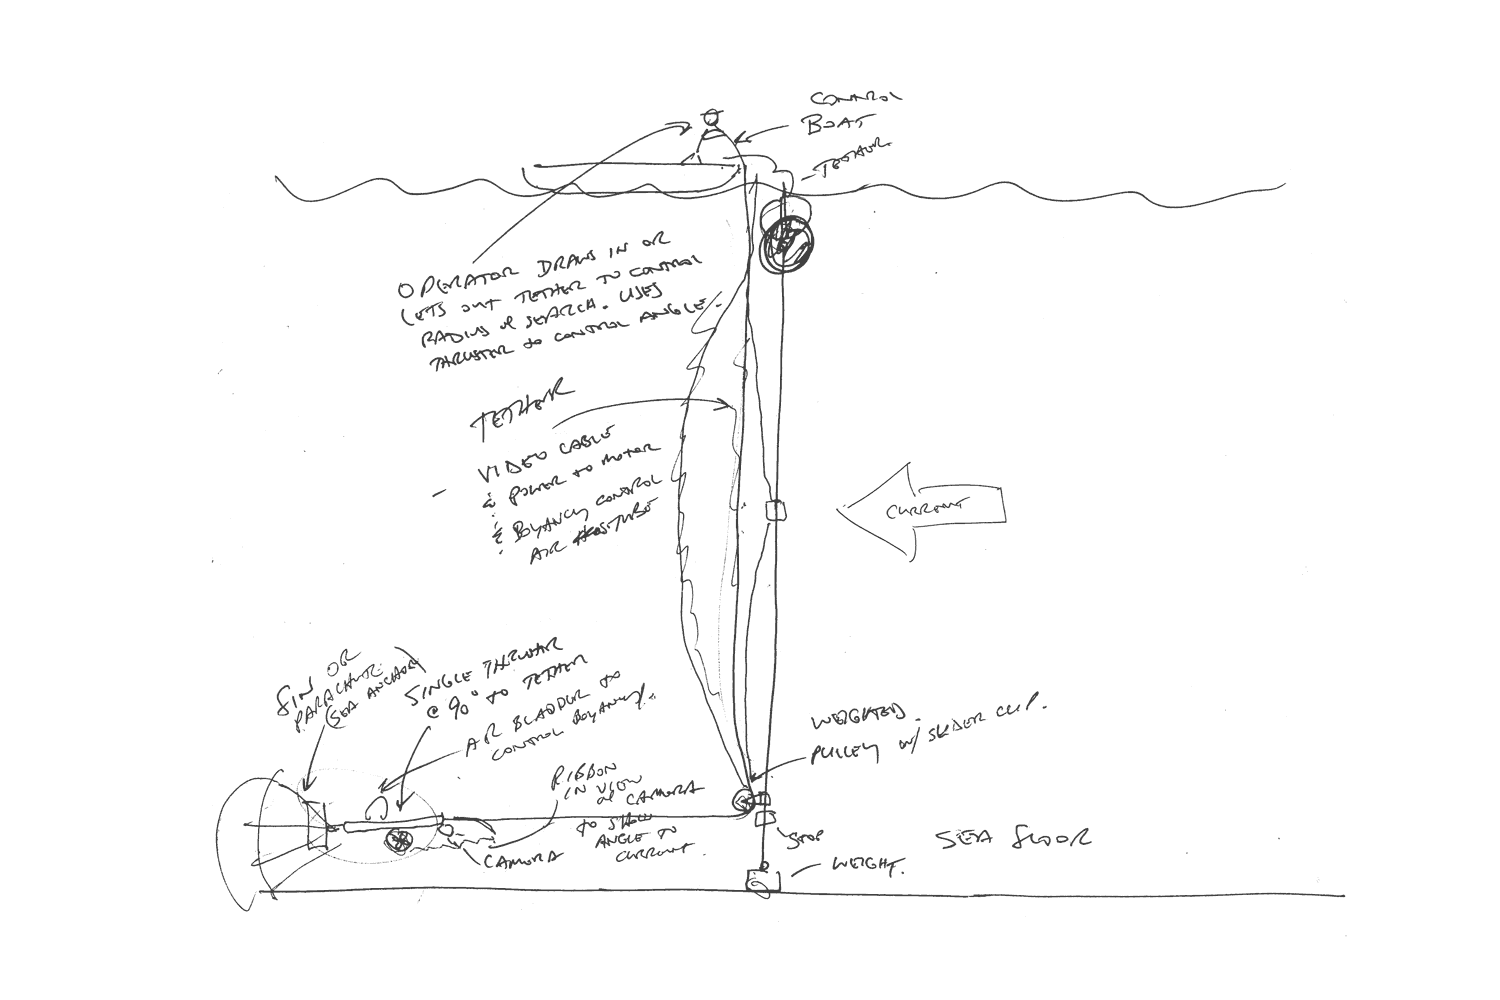 CONTROL
BOAT
- TETHER
OPERATOR DRAWS IN OR
LETS OUT TETHER TO CONTROL
RADIUS of SEARCH. USES
THRUSTER to CONTROL ANGLE.
TETHER
- VIDEO CABLE
& POWER to MOTOR
& BOYANCY CONTROL
AIR TUBE
CURRENT
FIN OR
PARACHUTE
(SEA ANCHOR)
SINGLE THRUSTER
@ 90° to TETHER
AIR BLADDER to
CONTROL BOYANCY.
RIBBON
IN VIEW
of CAMERA
to SHOW
ANGLE TO
CURRENT.
CAMERA
WEIGHTED
PULLEY W/ SLIDER CLIP.
STOP
- WEIGHT.
SEA FLOOR